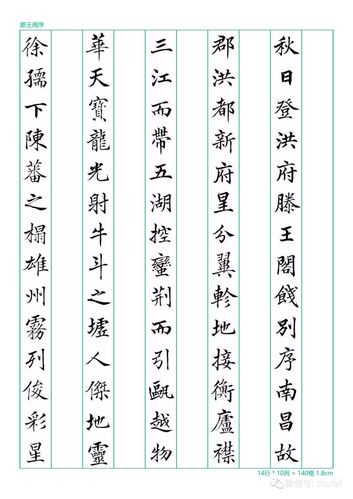 滕王阁序
秋日登洪府滕王閣餞別序南昌故
郡洪都新府星分翼軫地接衡廬襟
三江而帶五湖控蠻荊而引甌越物
華天寶龍光射牛斗之墟人傑地靈
徐孺下陳蕃之榻雄州霧列俊彩星
14行 * 10列 = 140格 1.6cm
微信号: